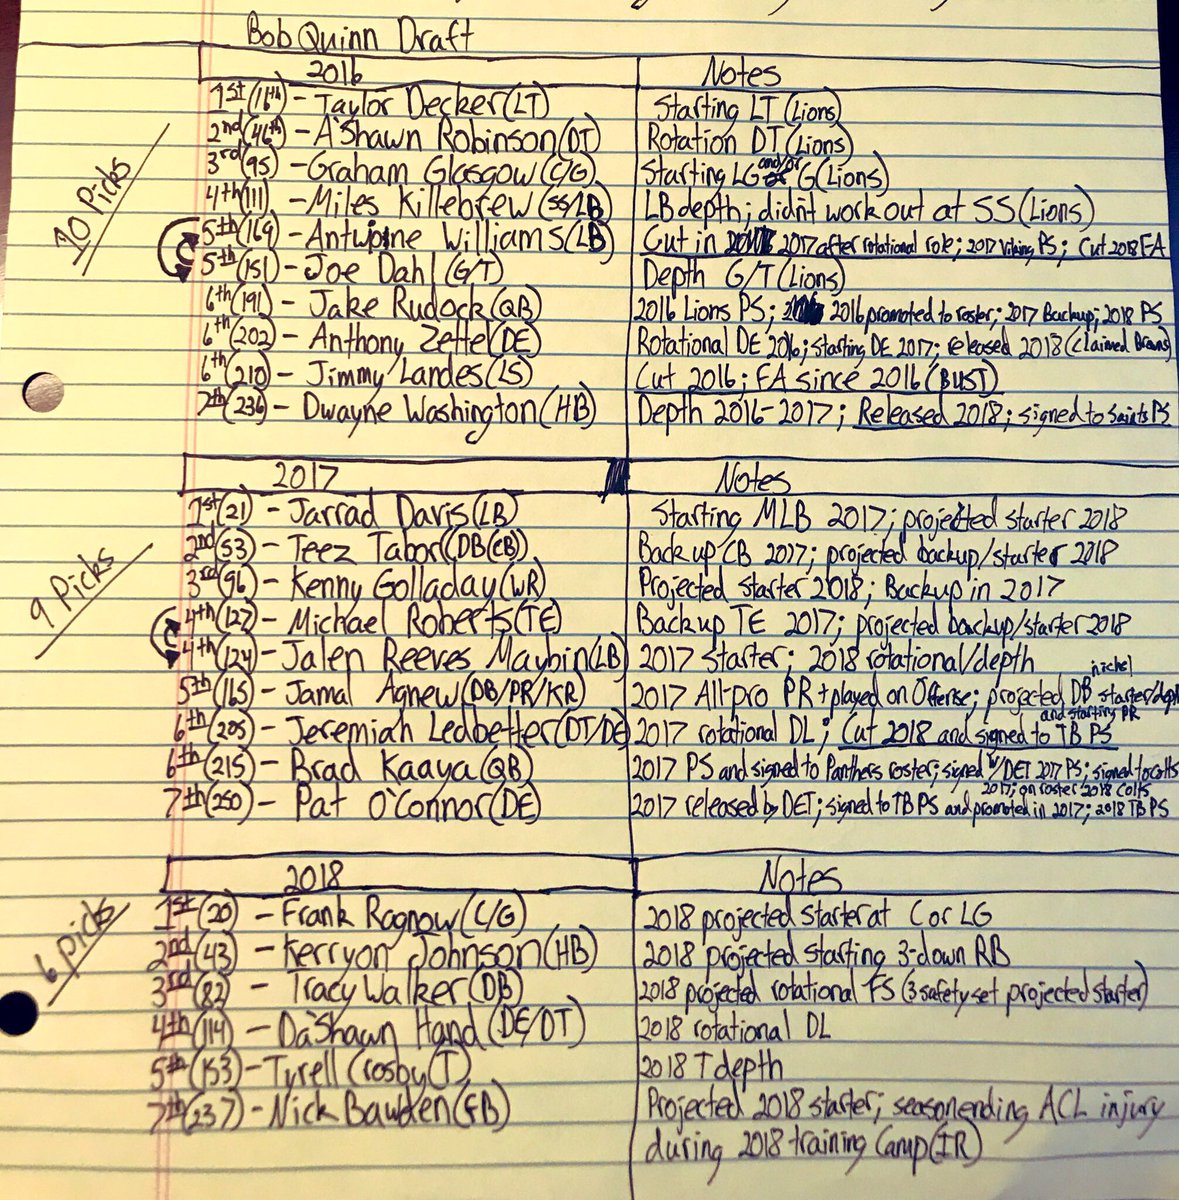 Bob Quinn Draft
2016 Notes
10 Picks
1st (16th) - Taylor Decker (LT) Starting LT (Lions)
2nd (46th) - A'Shawn Robinson (DT) Rotation DT (Lions)
3rd (95) - Graham Glasgow (C/G) Starting LG and/or G (Lions)
4th (111) - Miles Killebrew (SS/LB) LB depth; didn't work out at SS (Lions)
5th (169) - Antwoine Williams (LB) Cut in 2017 after rotational role; 2017 Viking PS; Cut 2018 FA
5th (151) - Joe Dahl (G/T) Depth G/T (Lions)
6th (191) - Jake Rudock (QB) 2016 Lions PS; 2016 promoted to roster; 2017 Backup; 2018 PS
6th (202) - Anthony Zettel (DE) Rotational DE 2016; starting DE 2017; released 2018 (claimed Browns)
6th (210) - Jimmy Landes (LS) Cut 2016; FA since 2016 (BUST)
7th (236) - Dwayne Washington (HB) Depth 2016-2017; Released 2018; signed to Saints PS
2017 Notes
9 Picks
1st (21) - Jarrad Davis (LB) Starting MLB 2017; projected starter 2018
2nd (53) - Teez Tabor (DB (CB)) Backup CB 2017; projected backup/starter 2018
3rd (96) - Kenny Golladay (WR) Projected starter 2018; Backup in 2017
4th (127) - Michael Roberts (TE) Backup TE 2017; projected backup/starter 2018
4th (124) - Jalen Reeves Maybin (LB) 2017 starter; 2018 rotational/depth
5th (165) - Jamal Agnew (DB/PR/KR) 2017 All-pro PR + played on Offense; projected DB nickel starter/depth and starting PR
6th (205) - Jeremiah Ledbetter (DT/DE) 2017 rotational DL; Cut 2018 and signed to TB PS
6th (215) - Brad Kaaya (QB) 2017 PS and signed to Panthers roster; signed w/ DET 2017 PS; signed to colts 2017; on roster 2018 Colts
7th (250) - Pat O'Connor (DE) 2017 released by DET; signed to TB PS and promoted in 2017; 2018 TB PS
2018 Notes
6 picks
1st (20) - Frank Ragnow (C/G) 2018 projected starter at C or LG
2nd (43) - Kerryon Johnson (HB) 2018 projected starting 3-down RB
3rd (82) - Tracy Walker (DB) 2018 projected rotational FS (3 safety set projected starter)
4th (114) - Da'Shawn Hand (DE/DT) 2018 rotational DL
5th (153) - Tyrell Crosby (T) 2018 T depth
7th (237) - Nick Bawden (FB) Projected 2018 starter; season ending ACL injury
during 2018 training Camp (IR)